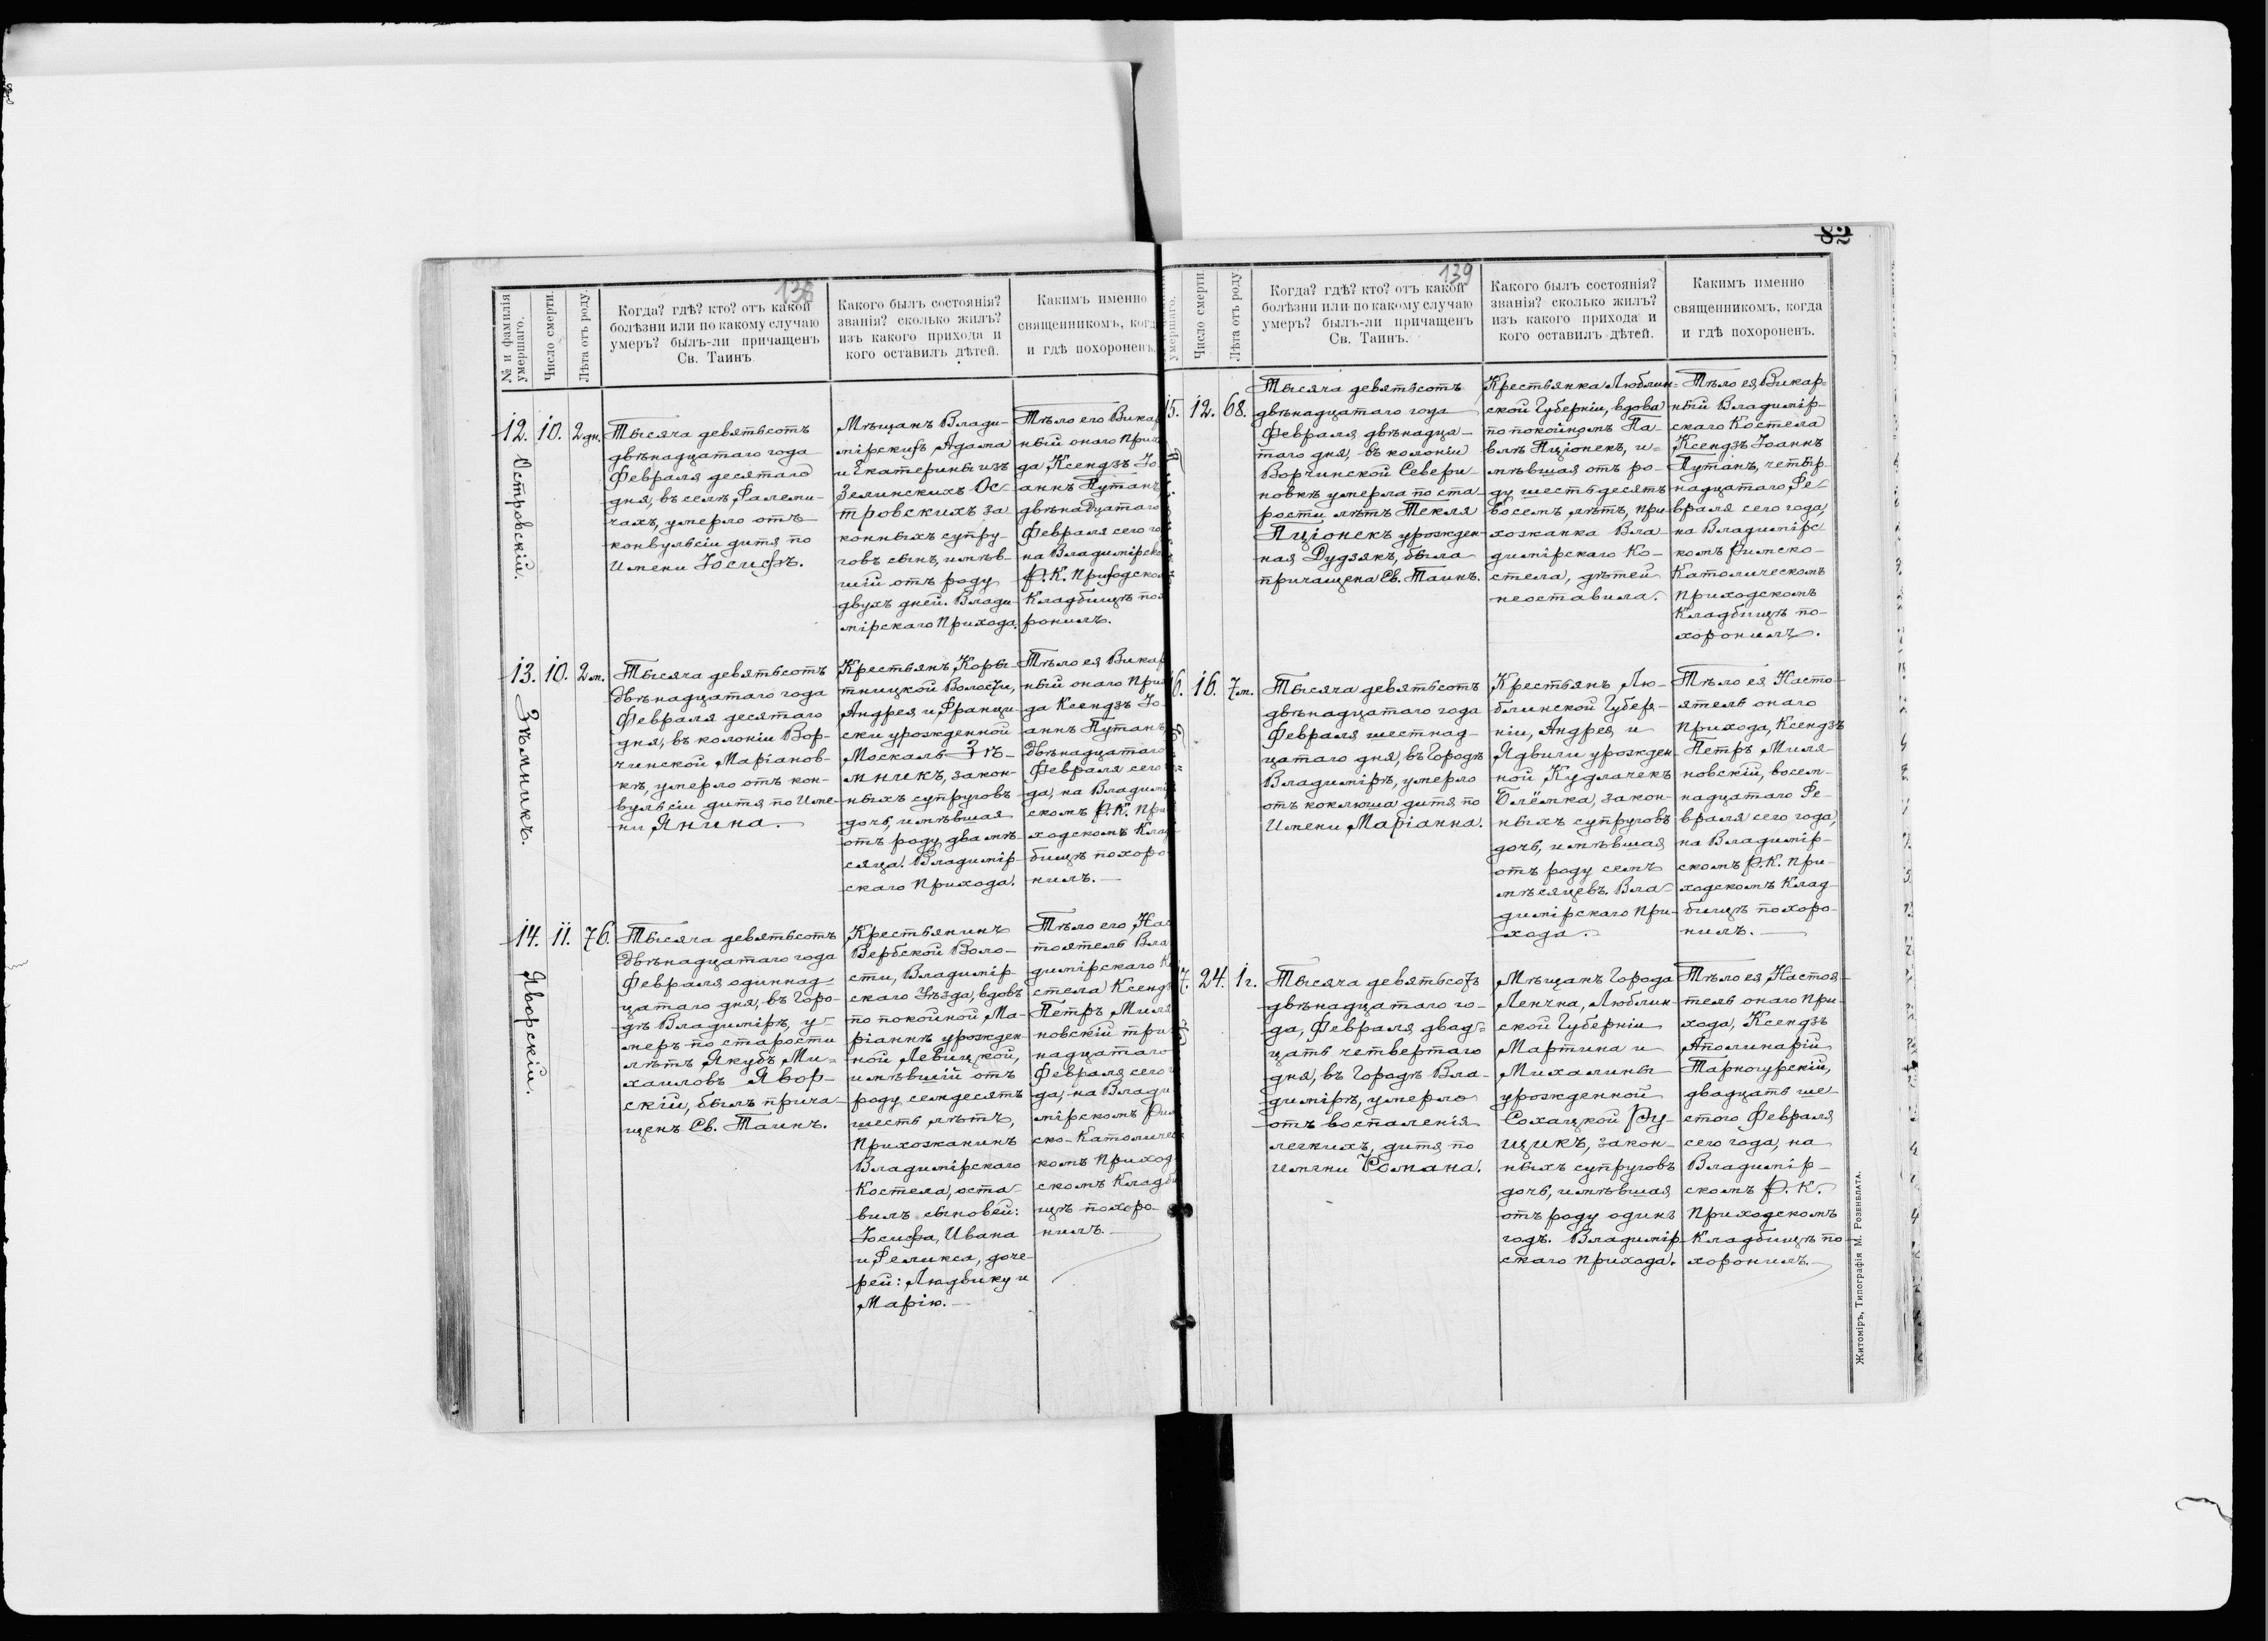 138
№ и фамилія
умершаго.
Число смерти.
Лѣта отъ роду.
Когда? гдѣ? кто? отъ какой
болѣзни или по какому случаю
умеръ? былъ-ли причащенъ
Св. Таинъ
Какого былъ состоянія?
званія? сколько жилъ?
изъ какого прихода и
кого оставилъ дѣтей.
Какимъ именно
священникомъ, когд
и гдѣ похороненъ.
12.
Островскій.
10.
2 дн.
Тысяча девятьсотъ
двѣнадцатаго года
Февраля десятаго
дня, въ селѣ Фалеми-
чахъ, умерло отъ
конвульсіи дитя по
Имени Іосифъ.
Мѣщанъ Влади-
мірскихъ, Адама
и Екатерины изъ
Зелинскихъ Ос-
тровскихъ за
конныхъ супру-
говъ сынъ, имѣв-
шій отъ роду
двухъ дней. Влади-
мірскаго Прихода.
Тѣло его Вика
ный онаго Прих
да, Ксендзъ Іо-
аннъ Путанъ,
двѣнадцатаго
Февраля сего го
на Владимірско
Р. К. Приходском
Кладбищѣ пох
ронилъ.
13.
Зѣмникъ.
10.
2 м.
Тысяча девятьсотъ
двѣнадцатаго года
Февраля десятаго
дня, въ колоніи Вор-
чинской Маріанов-
кѣ, умерло отъ кон-
вульсіи дитя, по Име-
ни Янина.
Крестьянъ, Коры-
тницкой Волости,
Андрея и Франци-
ски урожденной
Москаль Зѣ-
мникъ, закон-
ныхъ супруговъ
дочь, имѣвшая
отъ роду два мѣ-
сяца. Владимір-
скаго Прихода.
Тѣло ея Викар
ный онаго При
да Ксендзъ Іо-
аннъ Путанъ,
двѣнадцатаго
Февраля сего
да, на Владимі
скомъ Р. К. При
ходскомъ Клад
бищѣ похоро-
нилъ.
14.
Яворскій.
11.
76.
Тысяча девятьсотъ
двѣнадцатаго года
Февраля одиннад-
цатаго дня, въ Горо-
дѣ Владимірѣ, у-
меръ по старости
лѣтъ Якубъ Ми-
хаиловъ Явор-
скій, былъ прича-
щенъ Св. Таинъ.
Крестьянинъ
Вербской Воло-
сти, Владимір-
скаго Уѣзда, вдовъ
по покойной Ма-
ріаннѣ урожден-
ной Левицкой,
имѣвшій отъ
роду семдесятъ
шесть лѣтъ,
Прихожанинъ
Владимірскаго
Костела, оста-
вилъ сыновей:
Іосифа, Ивана
и Феликса, доче-
рей: Людвику и
Марію.
Тѣло его, Нас
тоятель Вла
димірскаго К
стела Ксендз
Петръ Миля
новскій три
надцатаго
Февраля сего
да, на Влади
мірскомъ Рим
ско-Католичес
комъ Приход
скомъ Кладби
щѣ похоро-
нилъ.
82
139
умершаго.
Число смерти
Лѣта отъ роду.
Когда? гдѣ? кто? отъ какой
болѣзни или по какому случаю
умеръ? былъ-ли причащенъ
Св. Таинъ.
Какого былъ состоянія?
званія? сколько жилъ?
изъ какого прихода и
кого оставилъ дѣтей.
Какимъ именно
священникомъ, когда
и гдѣ похороненъ.
15.
12.
68.
Тысяча девятьсотъ
двѣнадцатаго года
Февраля двѣнадца-
таго дня, въ колоніи
Ворчинской Севери-
новкѣ умерла по ста-
рости лѣтъ Текля
Пціонекъ урожден-
ная Дудзякъ, была
причащена Св. Таинъ.
Крестьянка Люблин-
ской Губерніи, вдова
по покойномъ Па-
влѣ Пціонекъ, и-
мѣвшая отъ ро-
ду шестьдесятъ
восемъ лѣтъ, при-
хожанка Вла-
димірскаго Ко-
стела, дѣтей
неоставила.
Тѣло ея, Викар-
ный Владимір-
скаго Костела
Ксендзъ Іоаннъ
Путанъ, четыр-
надцатаго Фе-
враля сего года,
на Владимірс
комъ Римско-
Католическомъ
Приходскомъ
Кладбищѣ по-
хоронилъ.
16.
16.
7 м.
Тысяча девятьсотъ
двѣнадцатаго года
Февраля шестнад-
цатаго дня, въ Городѣ
Владимірѣ, умерло
отъ коклюша дитя по
Имени Маріанна.
Крестьянъ Лю-
блинской Губер-
ніи, Андрея и
Ядвиги урожден-
ной, Кудлачекъ
Блёмка, закон-
ныхъ супруговъ
дочь, имѣвшая
отъ роду семъ
мѣсяцевъ. Вла-
димірскаго При-
хода.
Тѣло ея, Насто-
ятель онаго
Прихода, Ксендзъ
Петръ Миля-
новскій, восем-
надцатаго Фе-
враля сего года,
на Владимір-
скомъ Р. К. При-
ходскомъ Клад-
бищѣ похоро-
нилъ.
17.
24.
1 г.
Тысяча девятьсотъ
двѣнадцатаго го-
да, Февраля двад-
цать четвертаго
дня, въ Городѣ Вла-
димірѣ, умерло
отъ воспаленія
легкихъ, дитя по
имени Романа.
Мѣщанъ Города
Ленчна, Люблин-
ской Губерніи
Мартина и
Михалины
урожденной
Сохацкой Ру-
щикъ, закон-
ныхъ супруговъ
дочь, имѣвшая
отъ роду одинъ
годъ. Владимір-
скаго Прихода.
Тѣло ея, Настоя-
тель онаго При-
хода, Ксендзъ
Аполинарій
Тарногурскій,
двадцать ше-
стого Февраля
сего года, на
Владимір-
скомъ Р. К.
Приходскомъ
Кладбищѣ по-
хоронилъ.
Житоміръ, Типографія М. Розенблата.